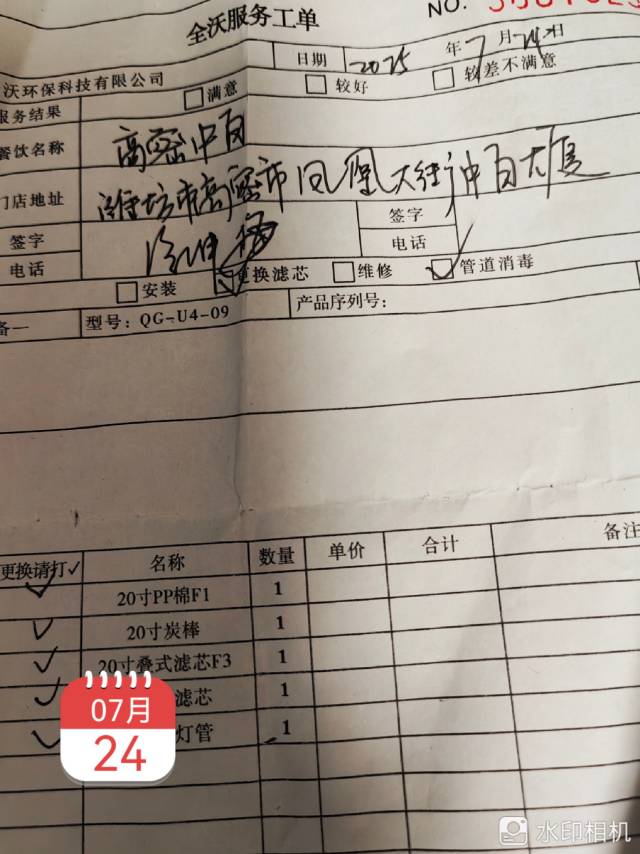 全沃服务工单
NO.
日期 2025 年 7 月 24 日
沃环保科技有限公司
服务结果 满意 较好 较差不满意
餐饮名称 高密中百
门店地址 潍坊市高密市凤凰大街中百大厦
签字 签字
电话 电话
安装 更换滤芯 维修 管道消毒
备一 型号：QG-U4-09 产品序列号：
更换请打✓ 名称 数量 单价 合计 备注
✓ 20寸PP棉F1 1
✓ 20寸炭棒 1
✓ 20寸叠式滤芯F3 1
✓ 滤芯 1
✓ 灯管 1
07月
24
水印相机